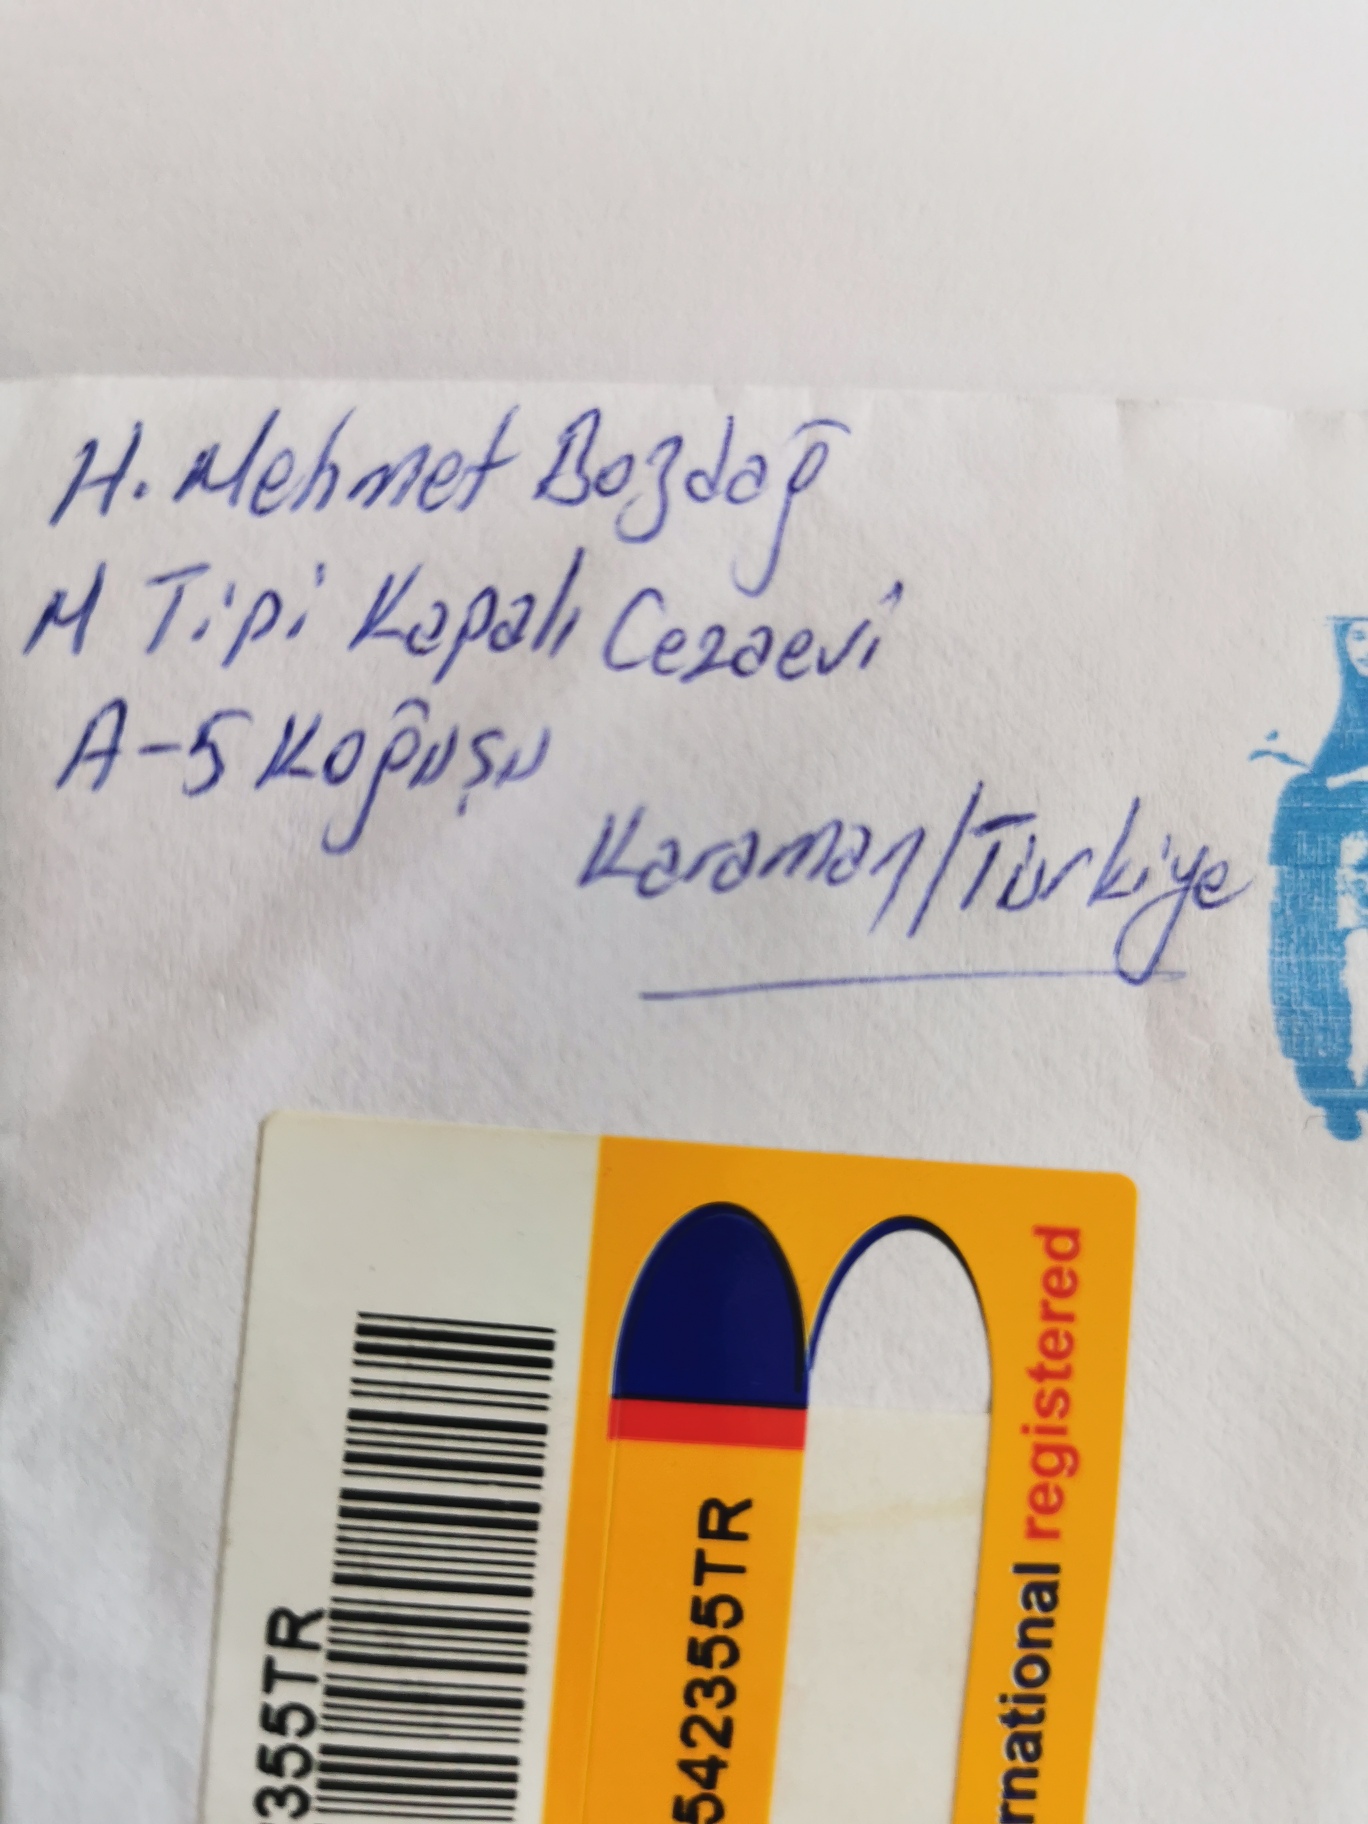 H. Mehmet Bozdağ
M Tipi Kapalı Cezaevi
A-5 Koğuşu
Karaman/Türkiye
355TR
542355TR
rnational registered